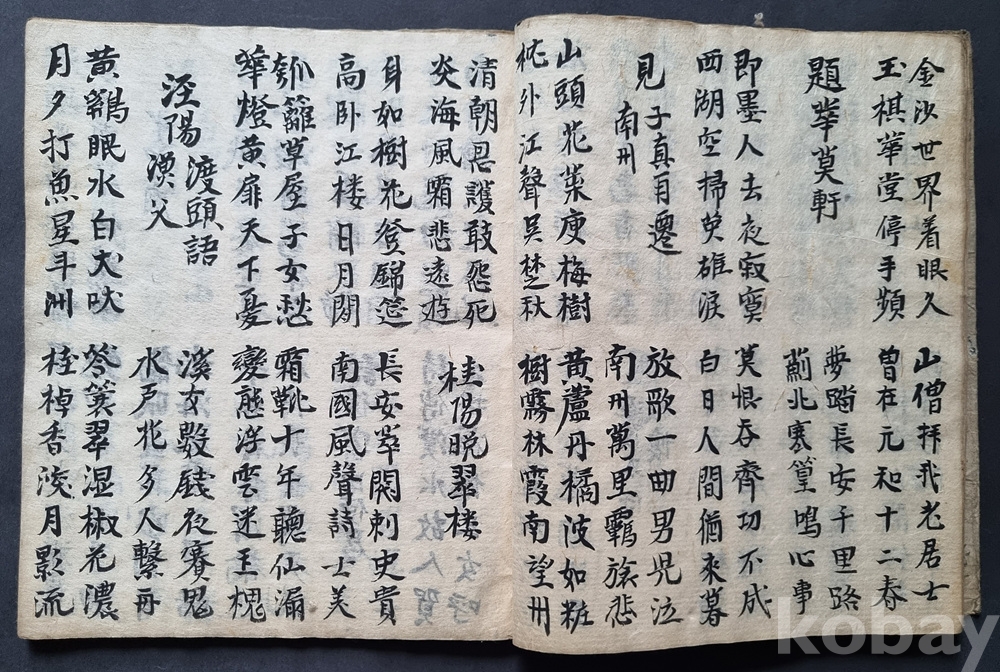 金沙世界着眼久 山僧拜我老居士
玉棋華堂停手頻 曾在元和十二春
題華萼軒 夢踏長安千里路
薊北寒篁鳴心事
即墨人去夜寂寞 莫恨吞齊功不成
西湖空掃英雄淚 白日人間猶來暮
見子真自遷 放歌一曲男児泣
南州 南州萬里羈旅悲
山頭花葉庾梅樹 黃蘆丹橘波如粧
枕外江聲吳楚秋 樹霧林霞南望州
清朝恩護敢怨死 桂陽晩翠楼
炎海風霜悲遠遊
身如樹花登錦筵 長安閑刺史貴
高卧江楼日月閑 南國風聲詩士美
瓠籬草屋子女愁 霜靴十年聽仙漏
華燈黄扉天下憂 變態浮雲迷王槐
涇陽渡頭語 溪女數錢夜賽鬼
漢父 水戶花多人繫舟
黄鷄眠水白犬吠 笭簑翠湿椒花濃
月夕打魚星斗洲 桂棹香淺月影流
kobay